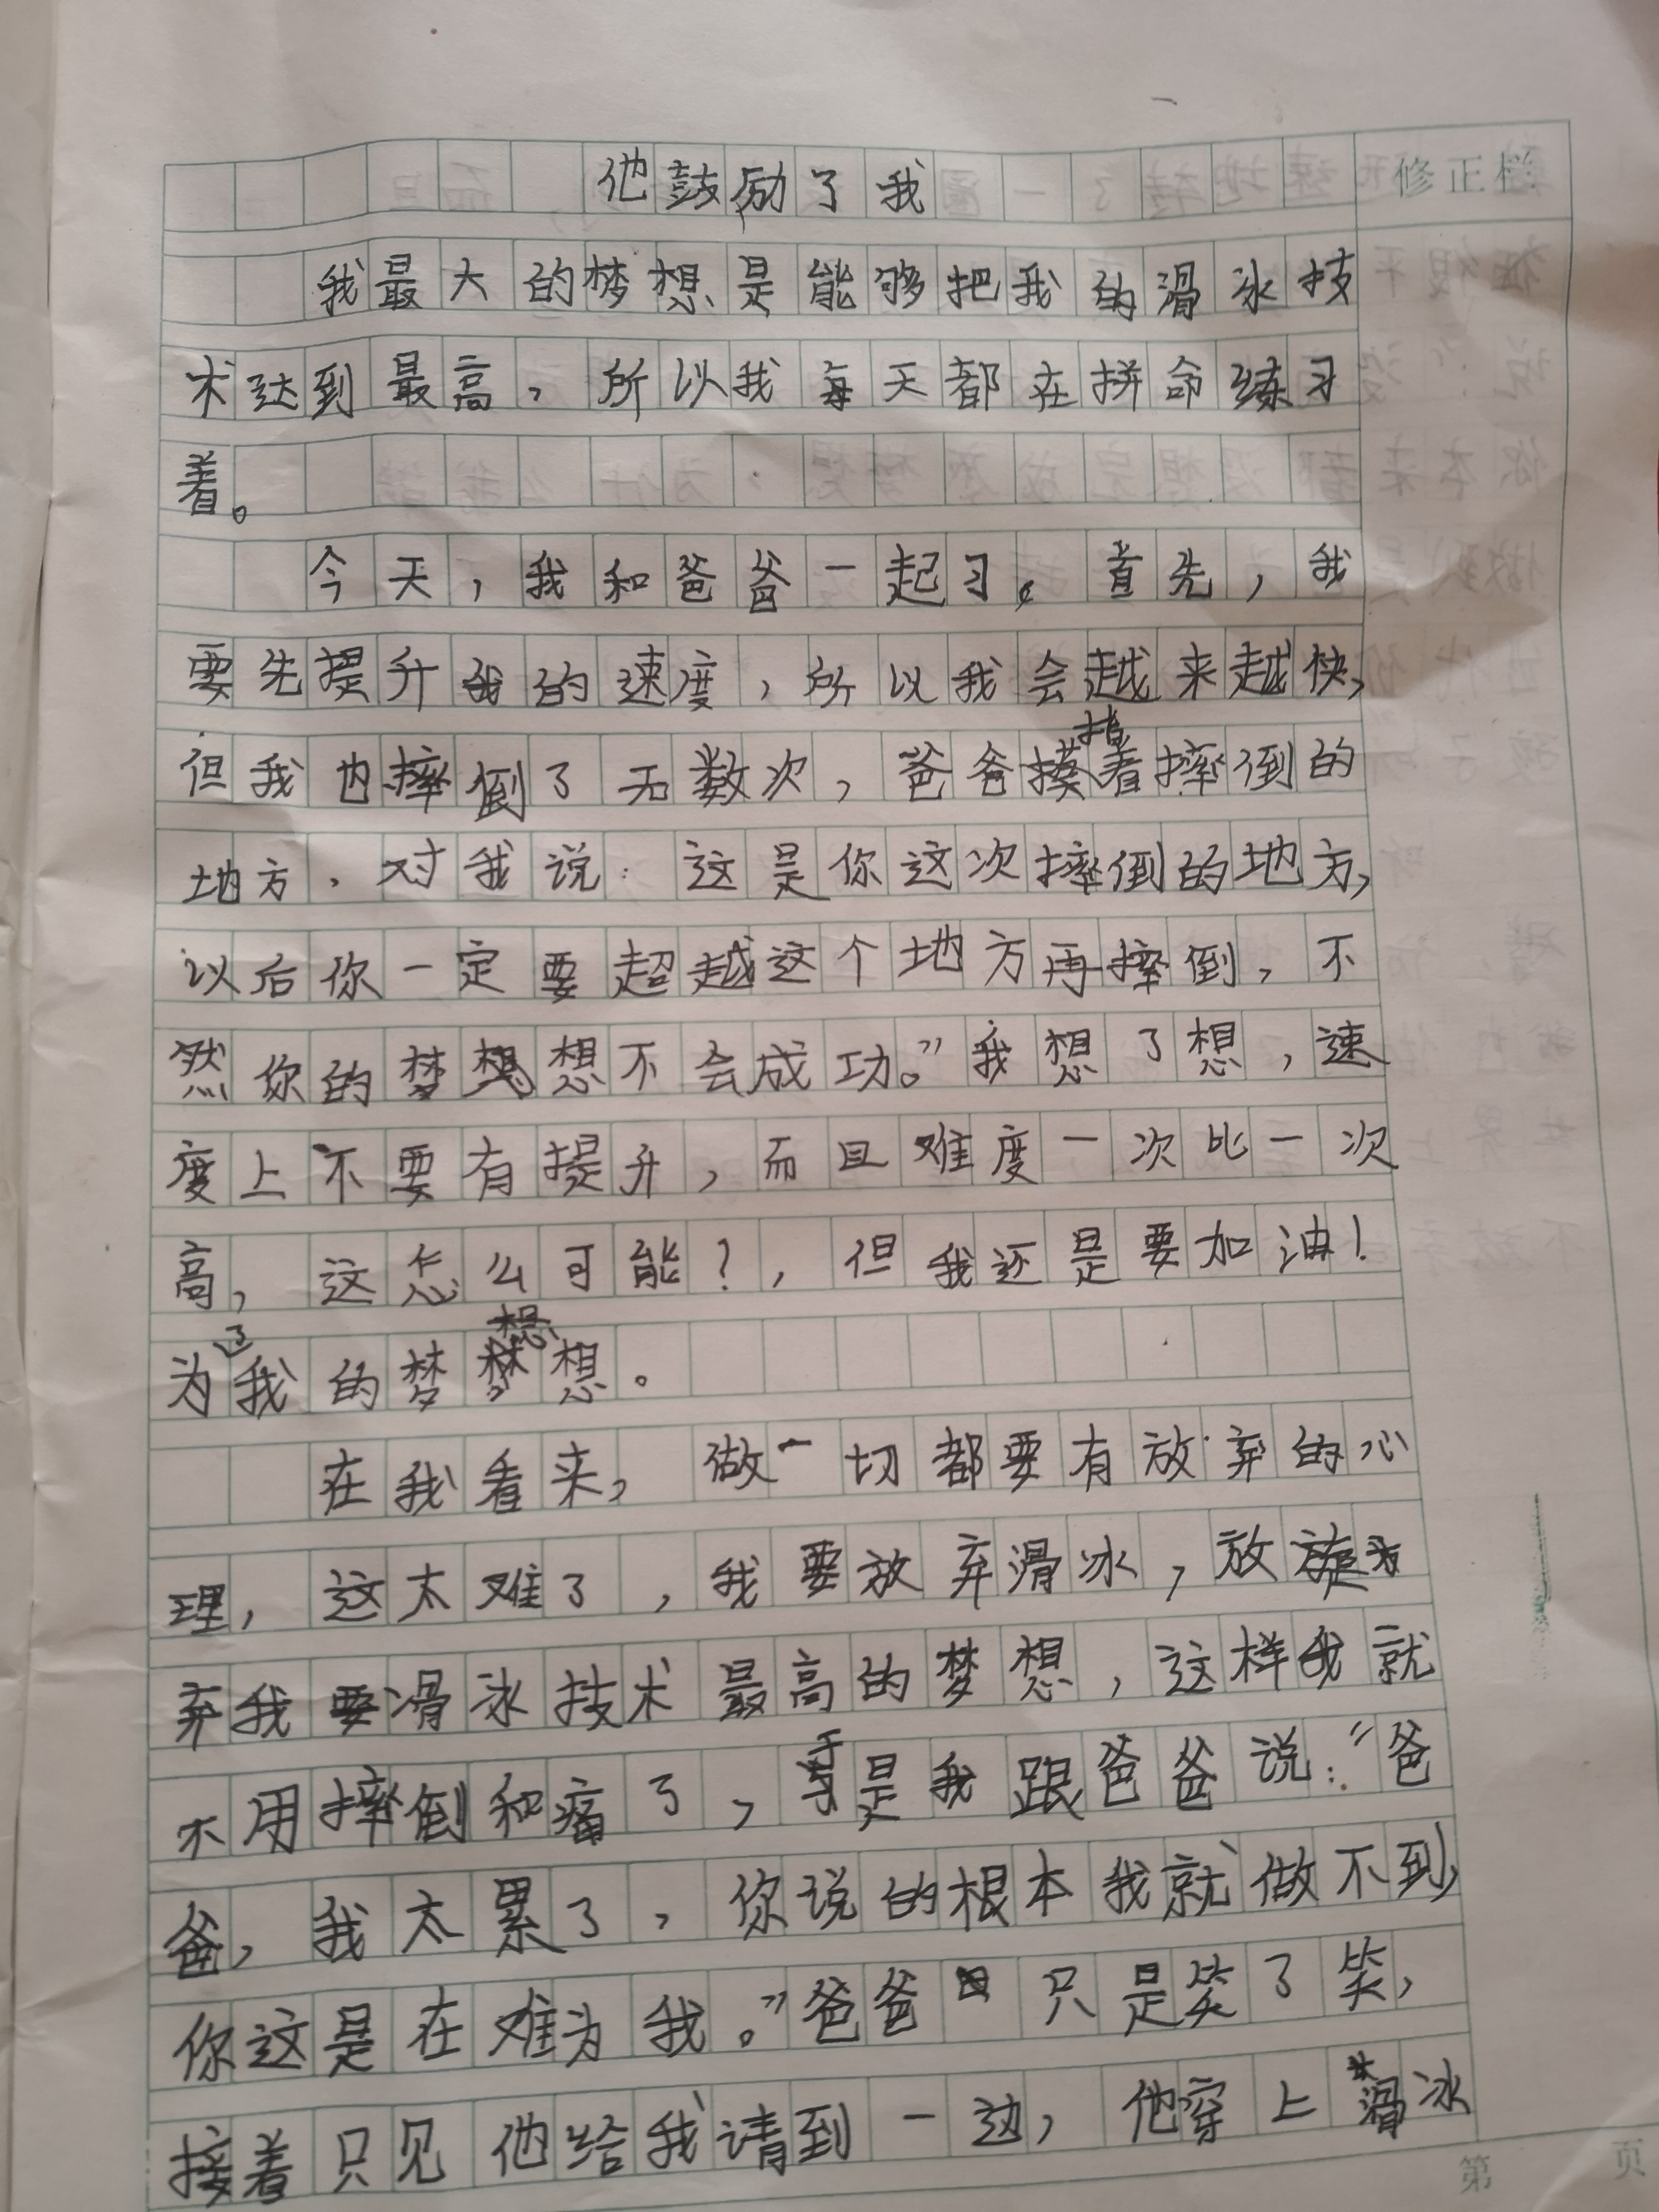 他鼓励了我
修正栏
我最大的梦想是能够把我的滑冰技
术达到最高，所以我每天都在拼命练习
着。
今天，我和爸爸一起习。首先，我
要先提升我的速度，所以我会越来越快，
但我也摔倒了无数次，爸爸指着摔倒的
地方，对我说：这是你这次摔倒的地方，
以后你一定要超越这个地方再摔倒，不
然你的梦想不会成功。”我想了想，速
度上不要有提升，而且难度一次比一次
高，这怎么可能？，但我还是要加油！
为了我的梦想想。
在我看来，做一切都要有放弃的心
理，这太难了，我要放弃滑冰，放
弃我要滑冰技术最高的梦想，这样我就
不用摔倒和痛了，于是我跟爸爸说：“爸
爸，我太累了，你说的根本我就做不到，
你这是在难为我。”爸爸只是笑了笑，
接着只见他给我请到一边，他穿上滑冰
第 页